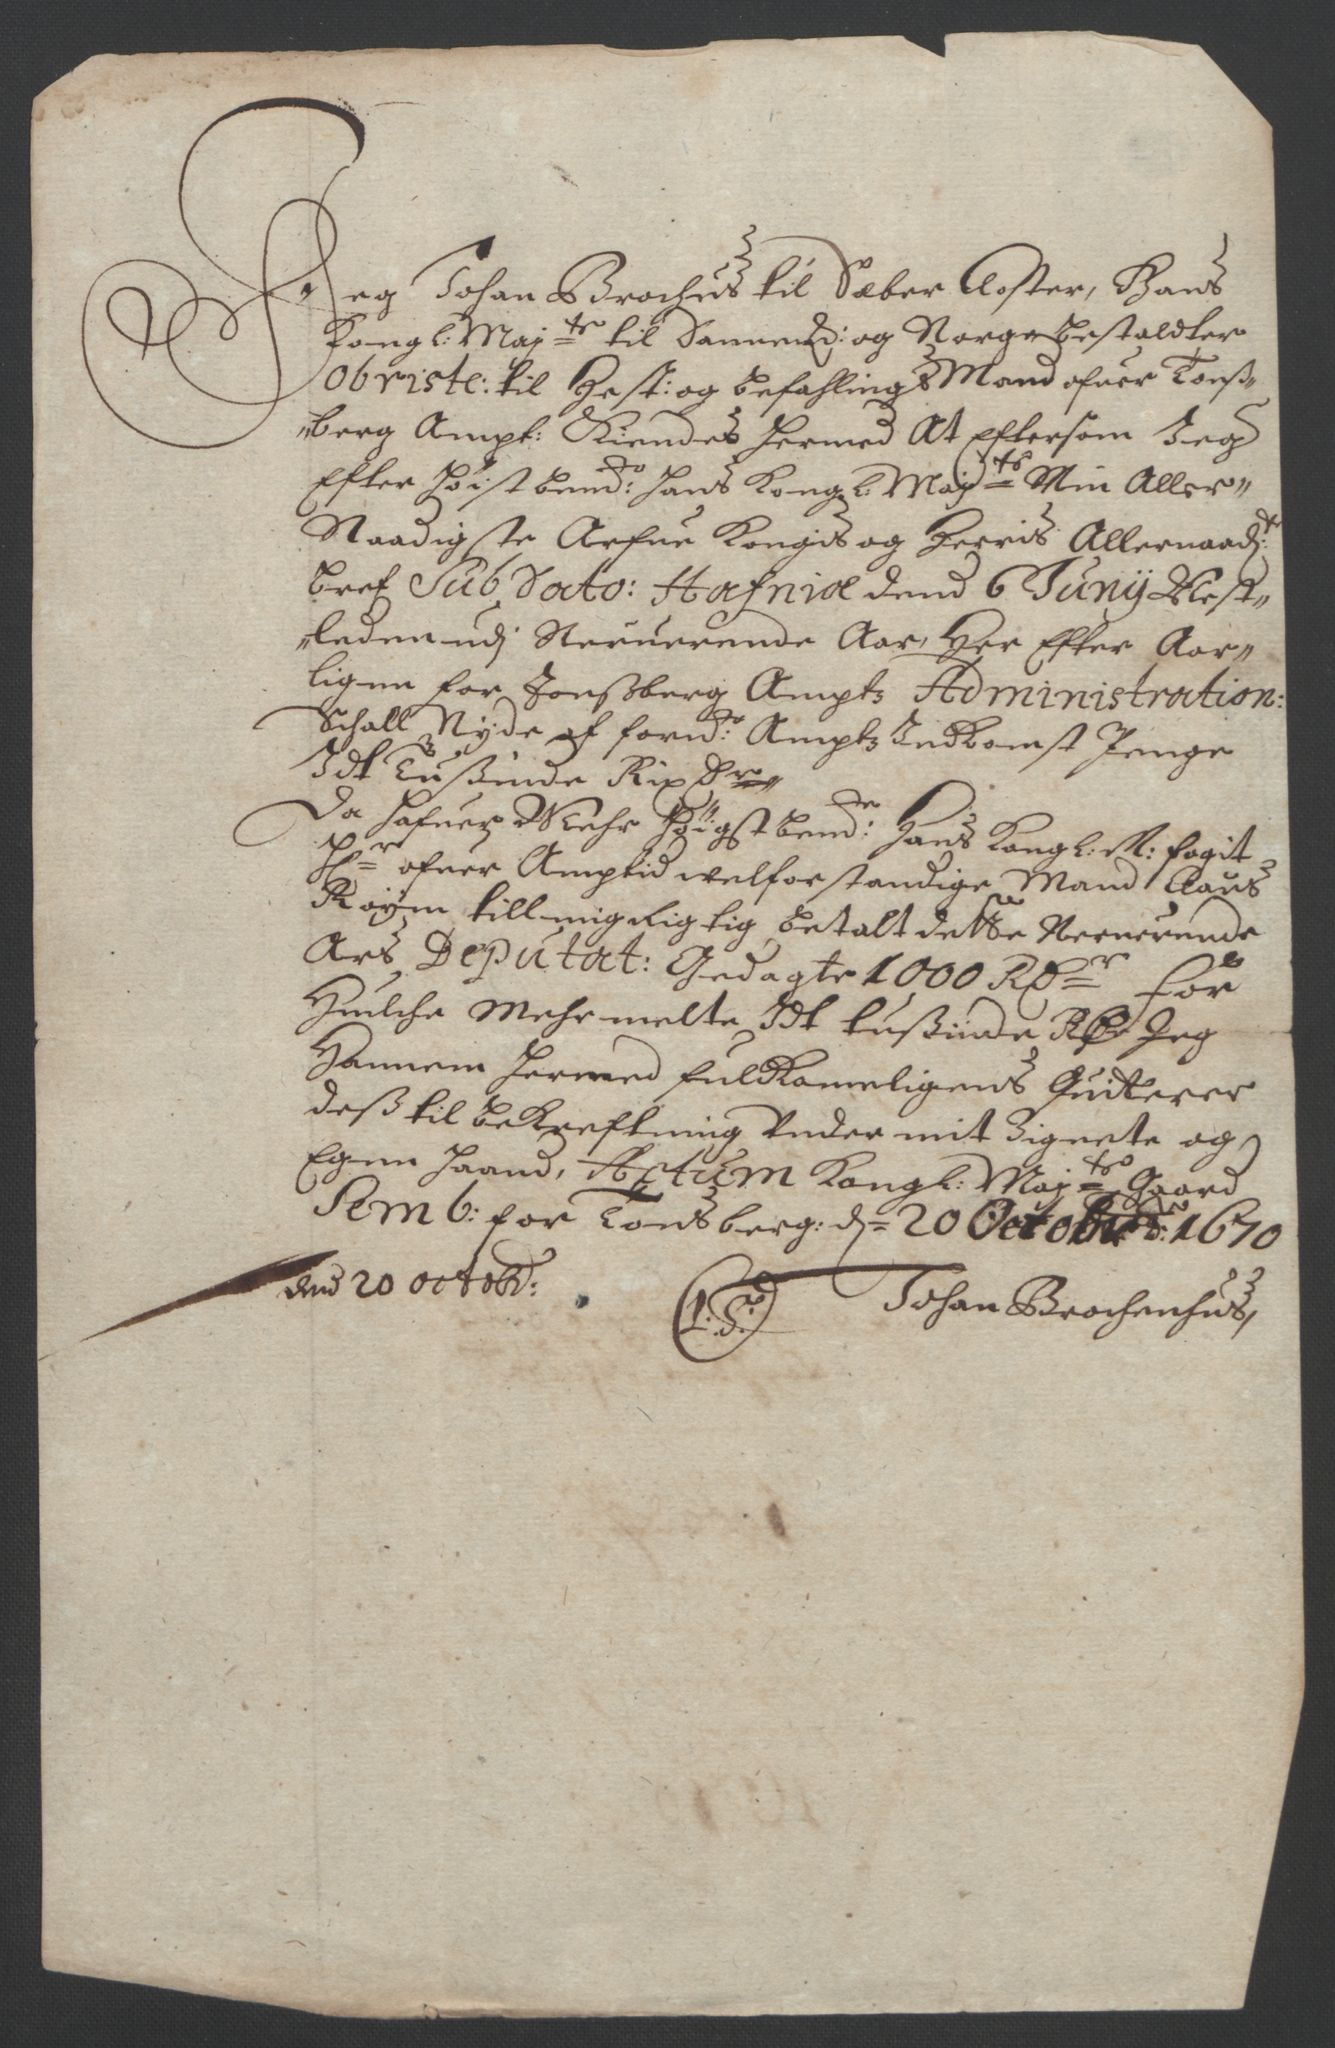 Jeg Johan Brochus til Sæber Closter, Hans
Kongl: Maj:ts til Danmrk: og Norge bestaldter
Obriste: til Hest: og befahlings Mand ofuer Tonß„
„berg Ampt: Kiendes hermed At Eftersom Jeg
Efter høist bemd:te Hans Kongl: Maj:ts Min Aller„
Naadigste Arfue Kongis og Herris Allernaad:te
bref Sub Dato: Hafniæ dend 6 Junij Nest„
„leden udj Neruerende Aar, Her Efter Aar„
ligen for Tonßberg Ampts Administration:
Schall Nyde af forn:de Ampts Indkomst Penge
Idt Tußinde Rixdr„
Da hafuer Mehr Høigstbemd:te Hans Kongl: M: fogit
H:r ofuer Amptid welforstandige Mand Claus
Røyem till mig Rigtig betalt dette Neruerende
Ars Deputat: Gedagte 1000 Rdr for
Huilche Mehrmelte Idt tußinde Rdr Jeg
Hannem hermed fuldkomeligens Quitterer
deß til bekreftning Under mit Zignete og
Egen haand, Actum Kongl: Maj:ts Gaard
Semb: for Tonsberg: d= 20 Octobr: 1670
dend 20 octobr:
(L. S.) Johan Brochenhus,